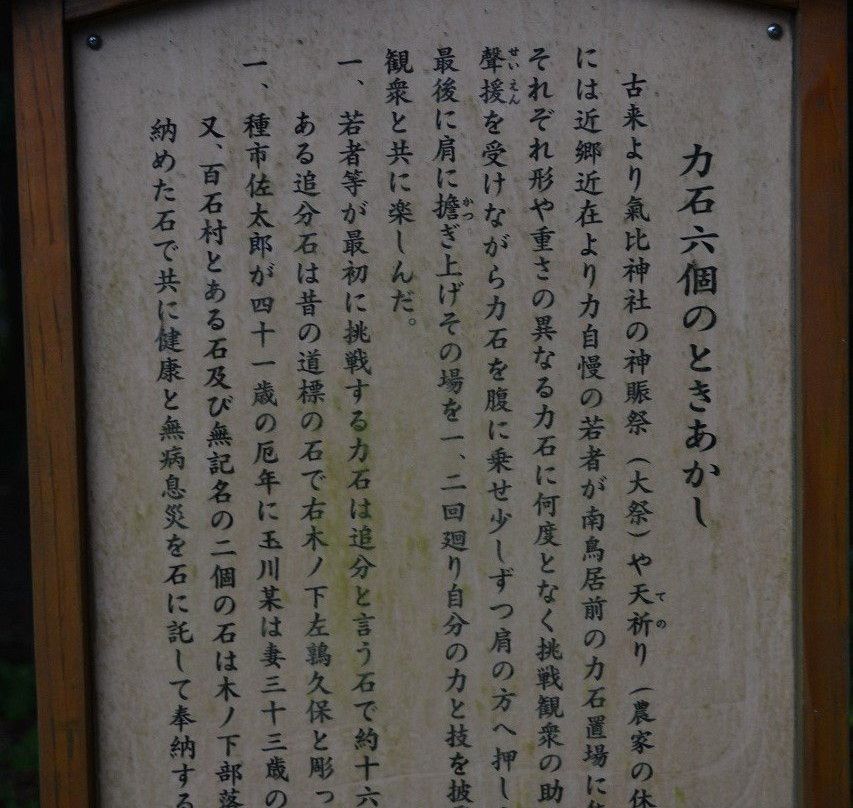 力石六個のときあかし
古来より氣比神社の神賑祭（大祭）や天祈り（農家の休
には近郷近在より力自慢の若者が南鳥居前の力石置場に
それぞれ形や重さの異なる力石に何度となく挑戦観衆の助
聲援を受けながら力石を腹に乗せ少しずつ肩の方へ押し
最後に肩に擔ぎ上げその場を一、二回廻り自分の力と技を披
観衆と共に楽しんだ。
一、若者等が最初に挑戦する力石は追分と言う石で約十六
ある追分石は昔の道標の石で右木ノ下左鶉久保と彫っ
一、種市佐太郎が四十一歳の厄年に玉川某は妻三十三歳の
又、百石村とある石及び無記名の二個の石は木ノ下部落
納めた石で共に健康と無病息災を石に託して奉納する